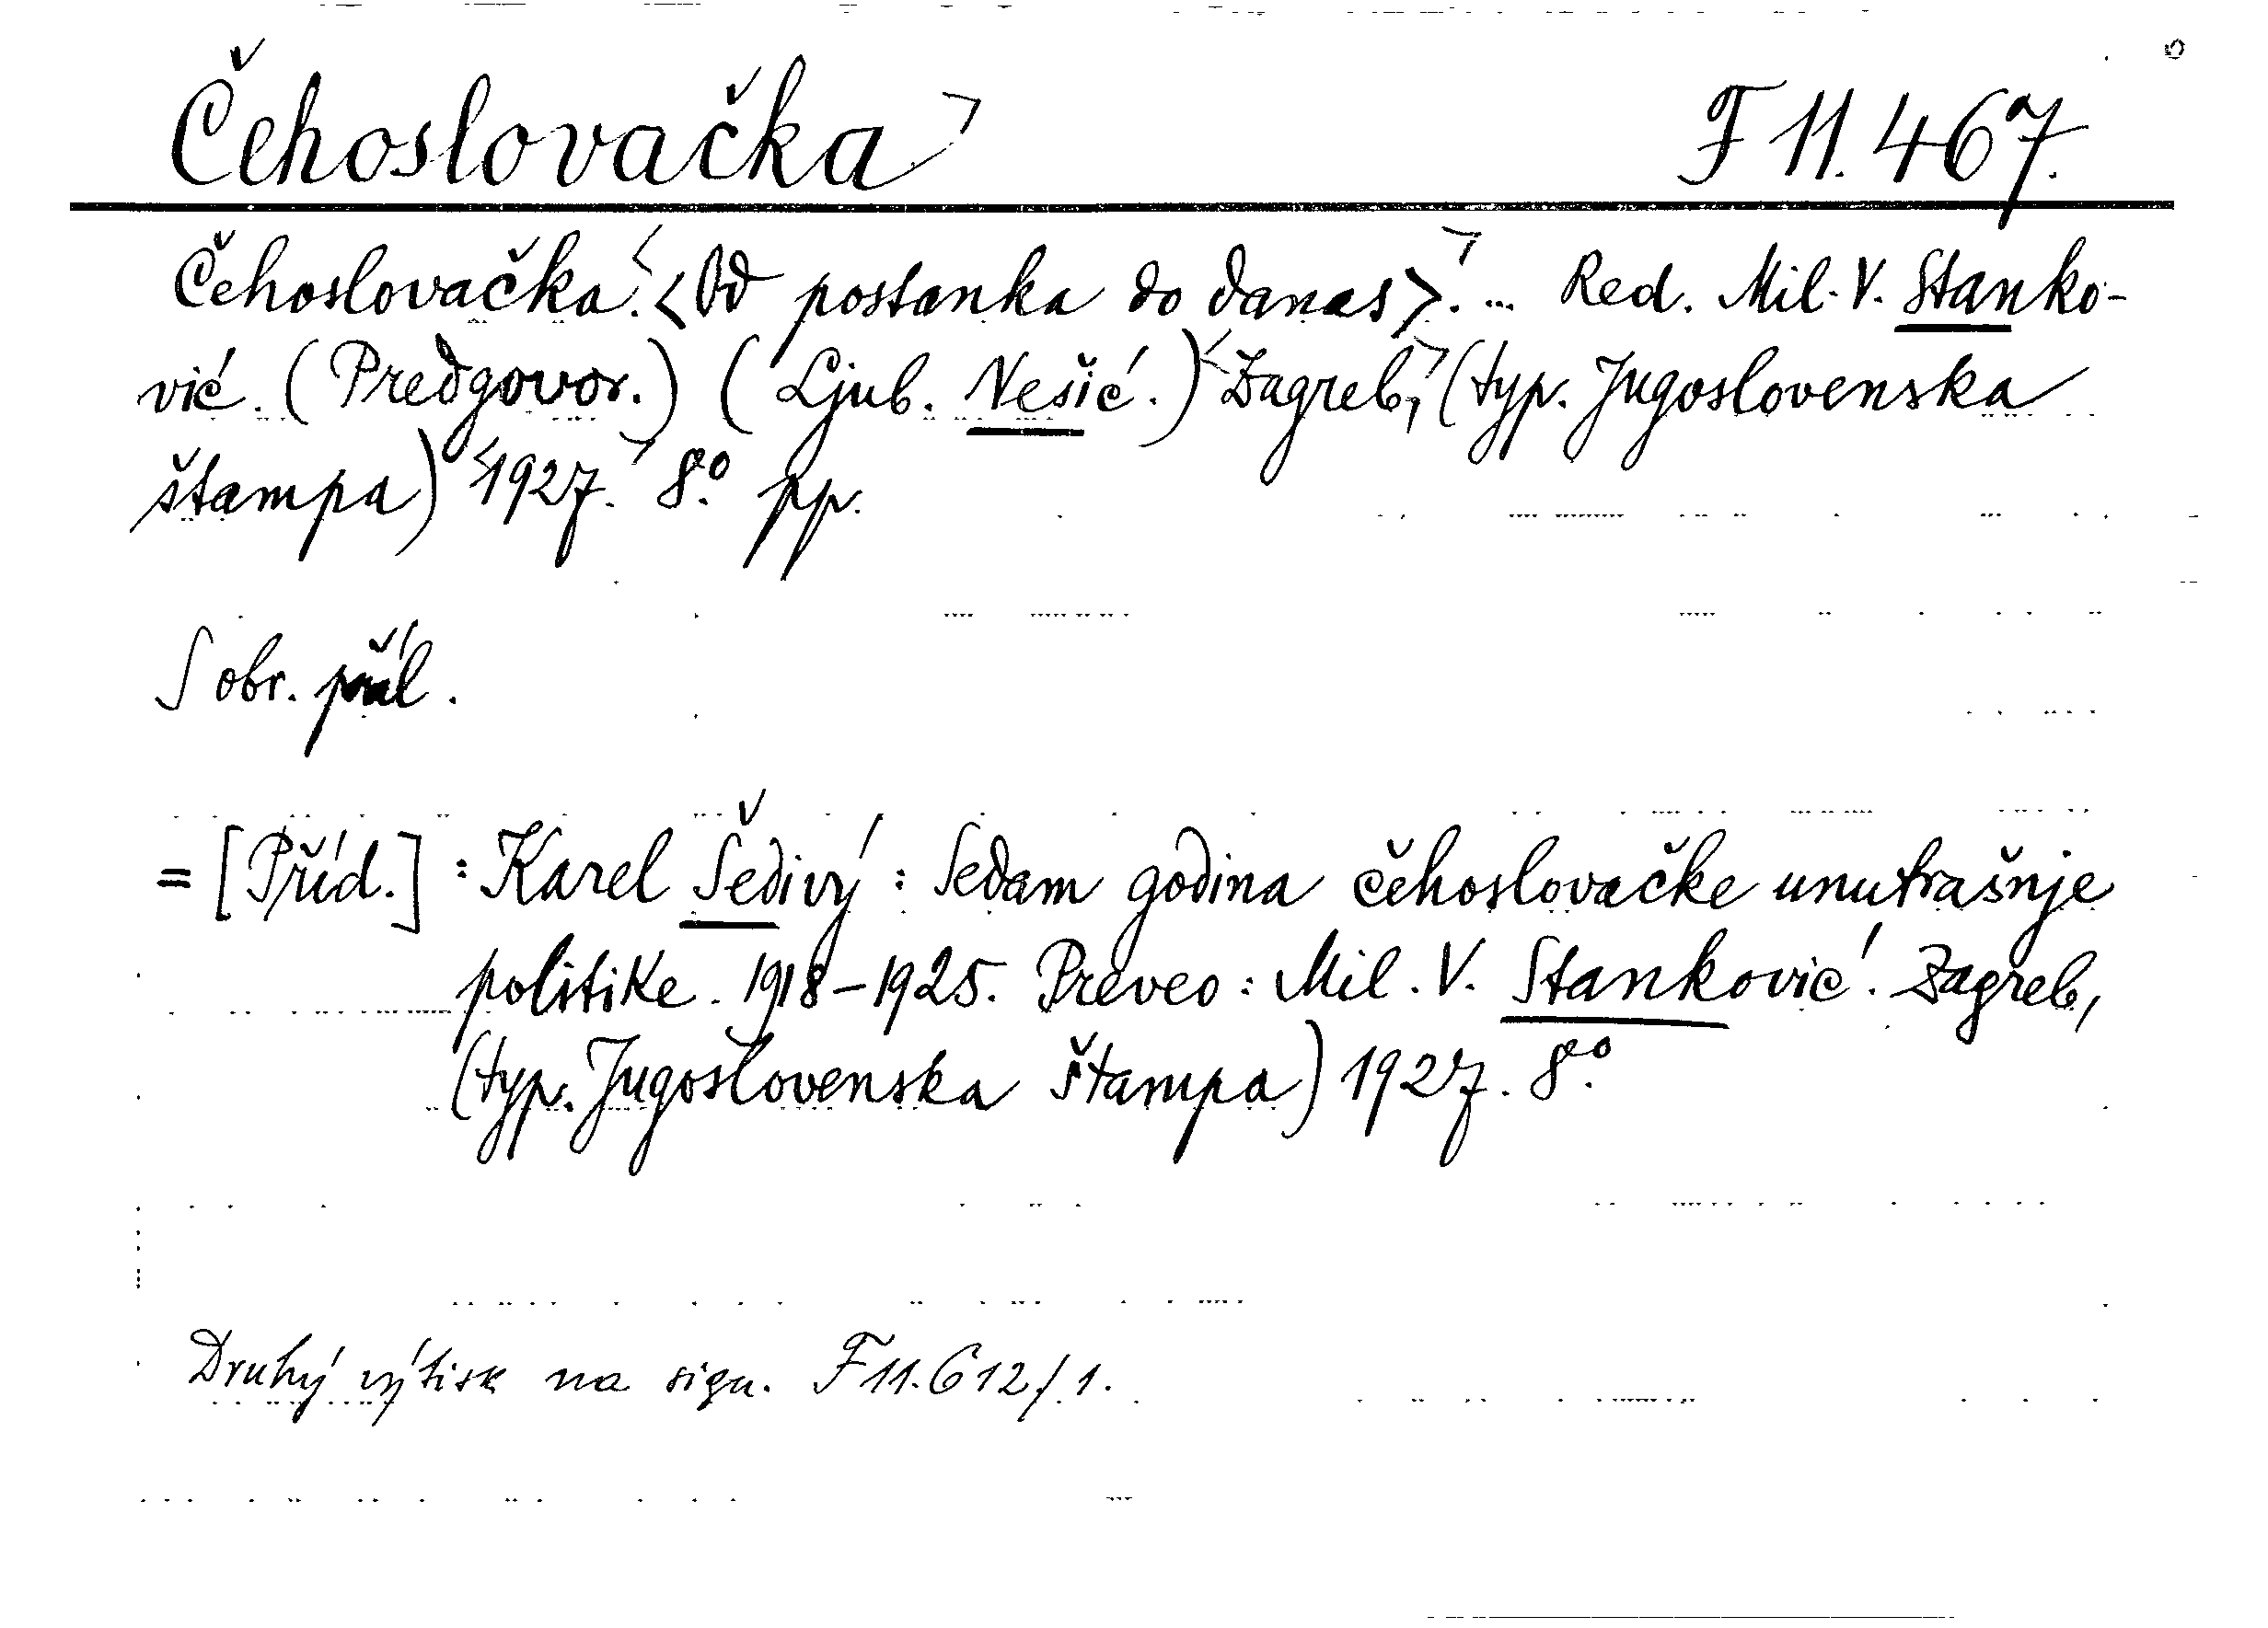 Čehoslovačka F 11.467.
Čehoslovačka. <Od postanka do danas>. ... Red. Mil. V. Stanko-
vić. (Predgovor.) (Ljub. Nešić.) Zagreb, (typ. Jugoslovenska
štampa) 1927. 8.° pp.
S obr. příl.
= [Příd.] : Karel Šedivý : Sedam godina čehoslovačke unutrašnje
politike. 1918-1925. Preveo : Mil. V. Stanković. Zagreb,
(typ. Jugoslovenska štampa) 1927. 8.°
Druhý výtisk na sign. F 11.612/1.